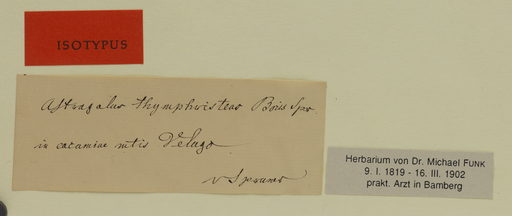 ISOTYPUS
Astragalus thymphresteus Boiss Spr.
in cacumine mtis Velugo
v Spruner
Herbarium von Dr. Michael FUNK
9. I. 1819 - 16. III. 1902
prakt. Arzt in Bamberg